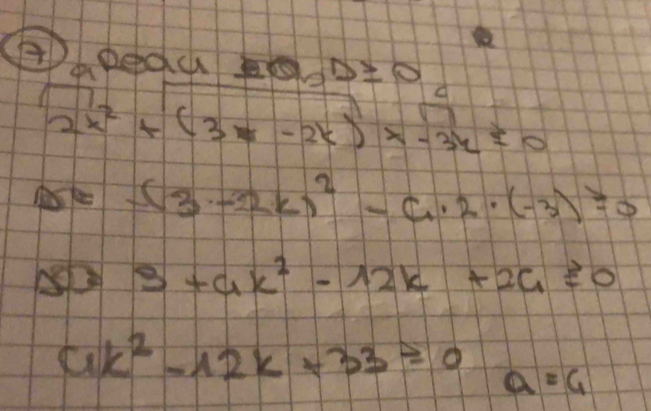 7 reali D ≥ 0
a c
2x² + (3 - 2k)x - 3k ≥ 0
(3 - 2k)² - 4·2·(-3) ≥ 0
9 + 4k² - 12k + 24 ≥ 0
4k² - 12k + 33 ≥ 0
a = 4